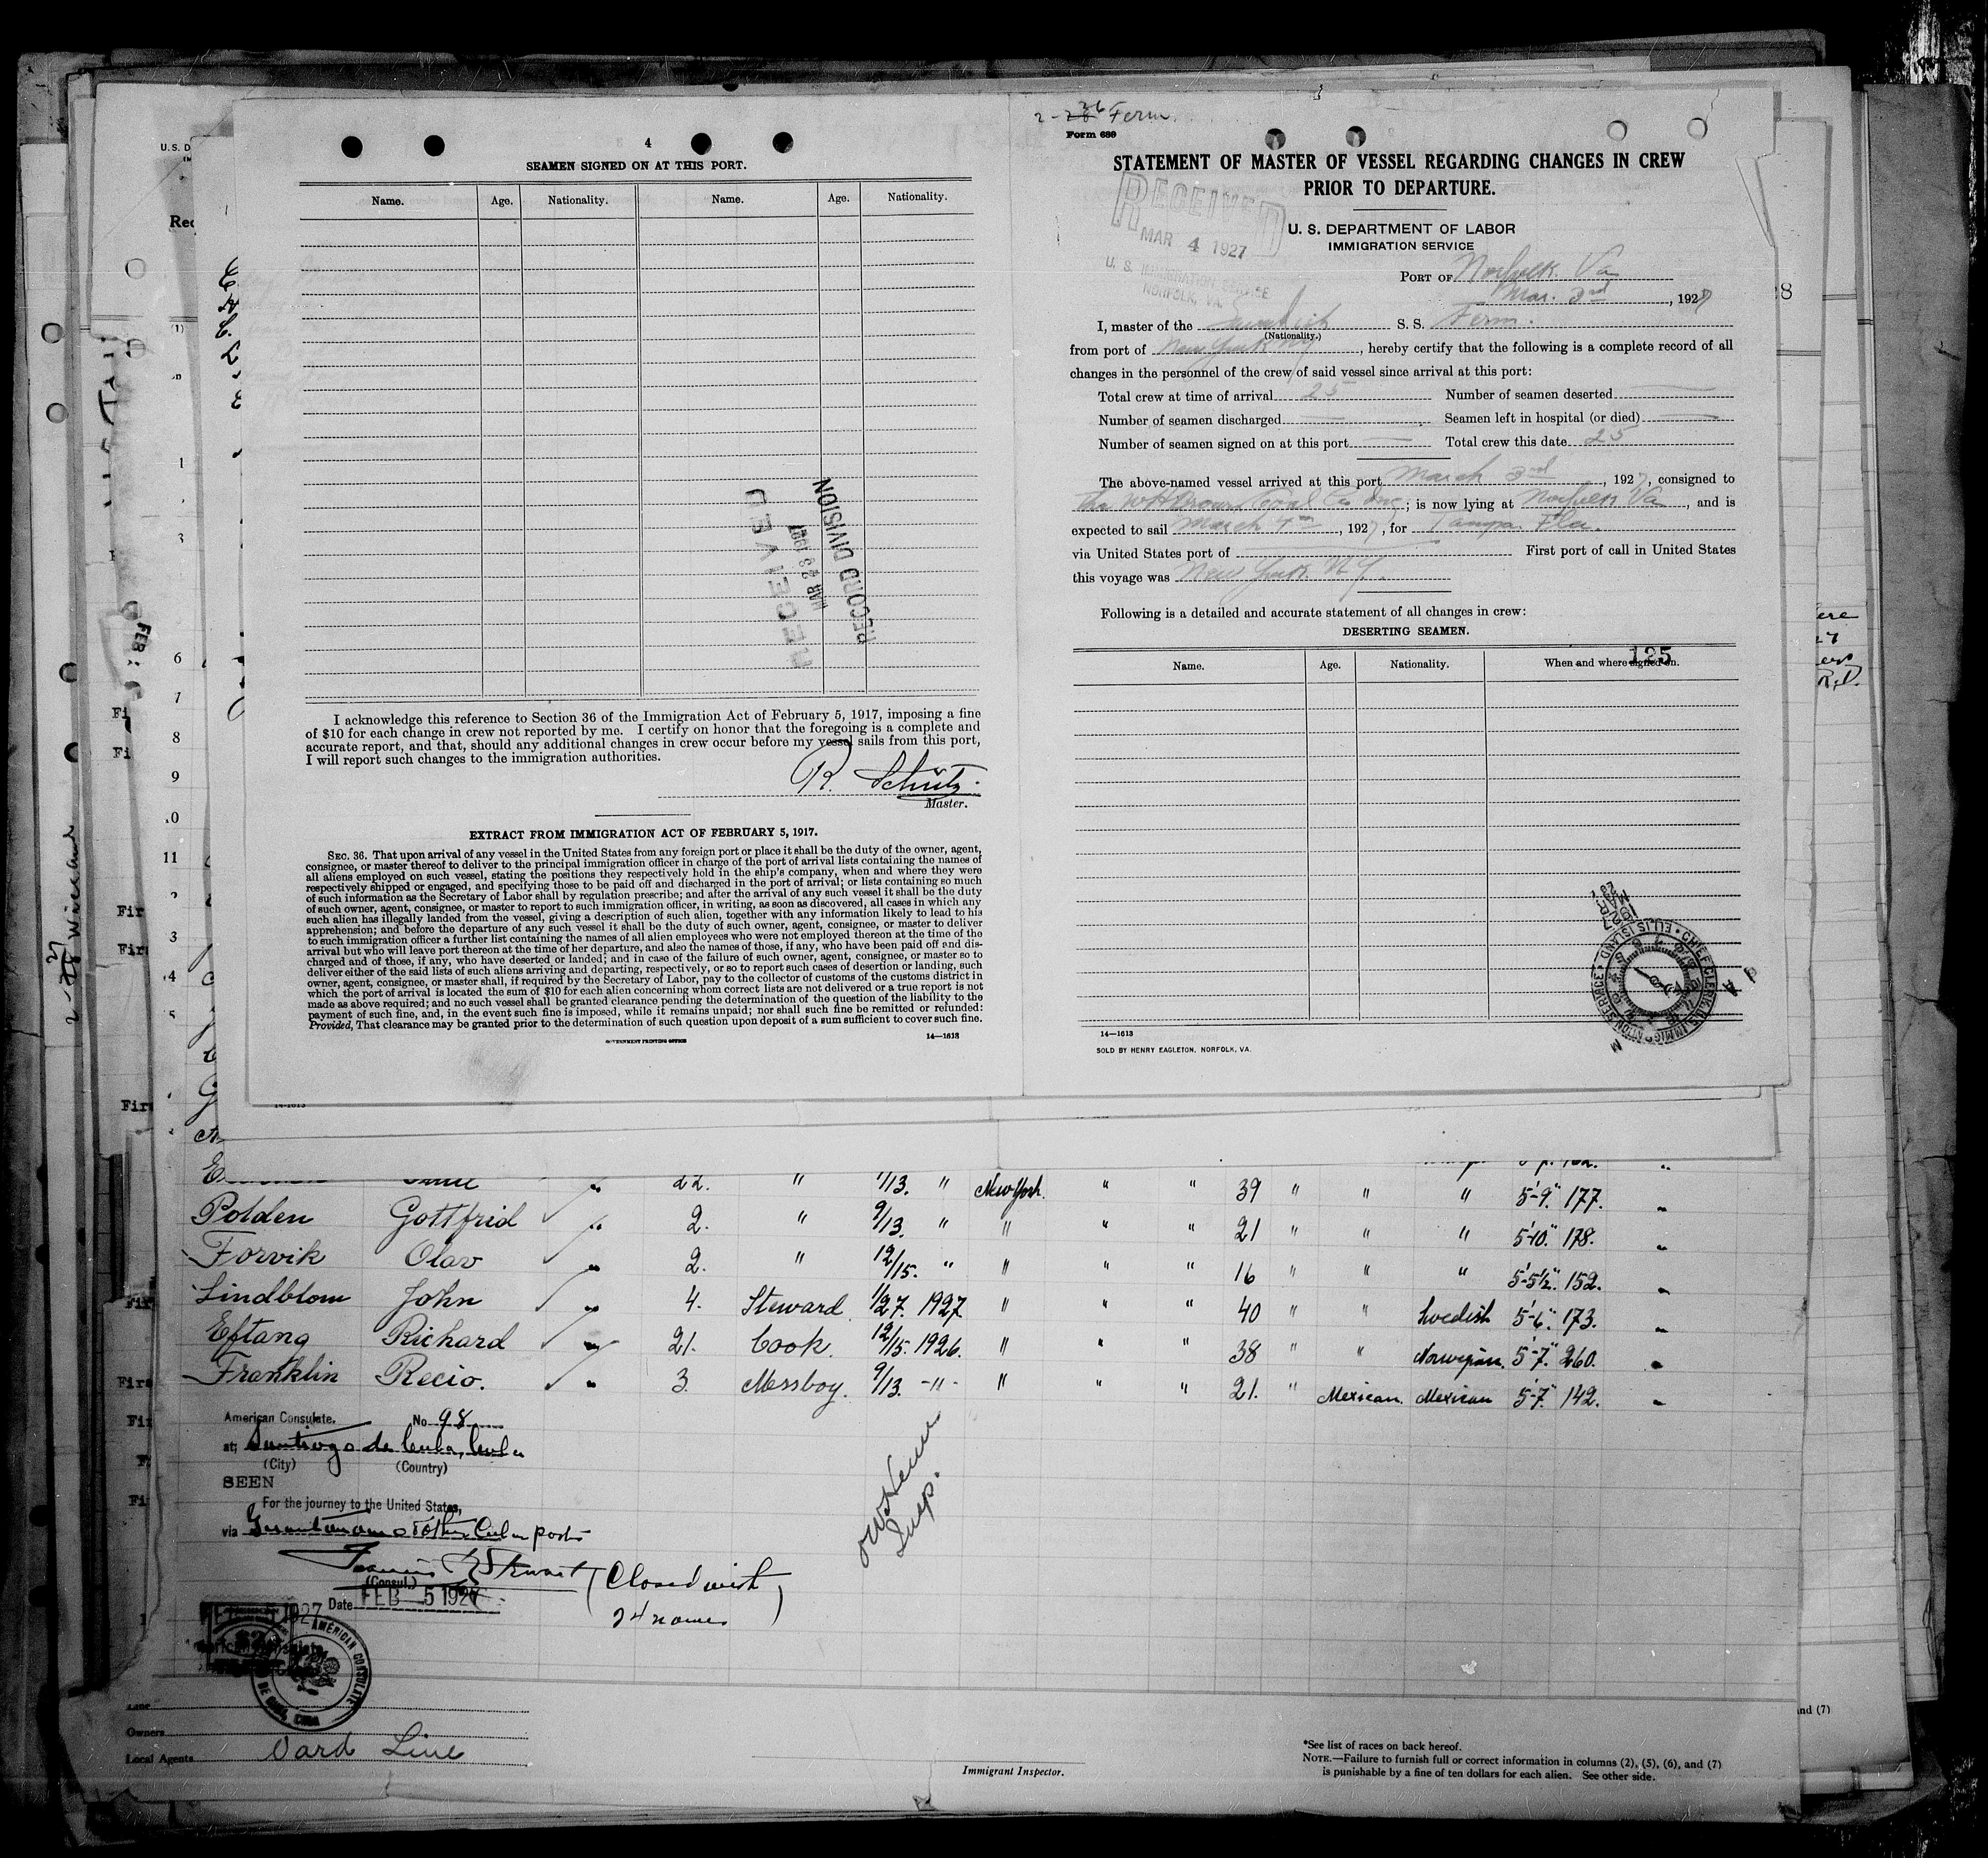 4
SEAMEN SIGNED ON AT THIS PORT.
Name. Age. Nationality. Name. Age. Nationality.
RECEIVED
MAR 23 1927
RECORD DIVISION
I acknowledge this reference to Section 36 of the Immigration Act of February 5, 1917, imposing a fine
of $10 for each change in crew not reported by me. I certify on honor that the foregoing is a complete and
accurate report, and that, should any additional changes in crew occur before my vessel sails from this port,
I will report such changes to the immigration authorities.
R. Schütz.
Master.
EXTRACT FROM IMMIGRATION ACT OF FEBRUARY 5, 1917.
SEC. 36. That upon arrival of any vessel in the United States from any foreign port or place it shall be the duty of the owner, agent,
consignee, or master thereof to deliver to the principal immigration officer in charge of the port of arrival lists containing the names of
all aliens employed on such vessel, stating the positions they respectively hold in the ship's company, when and where they were
respectively shipped or engaged, and specifying those to be paid off and discharged in the port of arrival; or lists containing so much
of such information as the Secretary of Labor shall by regulation prescribe; and after the arrival of any such vessel it shall be the duty
of such owner, agent, consignee, or master to report to such immigration officer, in writing, as soon as discovered, all cases in which any
such alien has illegally landed from the vessel, giving a description of such alien, together with any information likely to lead to his
apprehension; and before the departure of any such vessel it shall be the duty of such owner, agent, consignee, or master to deliver
to such immigration officer a further list containing the names of all alien employees who were not employed thereon at the time of the
arrival but who will leave port thereon at the time of her departure, and also the names of those, if any, who have been paid off and dis-
charged and of those, if any, who have deserted or landed; and in case of the failure of such owner, agent, consignee, or master so to
deliver either of the said lists of such aliens arriving and departing, respectively, or so to report such cases of desertion or landing, such
owner, agent, consignee, or master shall, if required by the Secretary of Labor, pay to the collector of customs of the customs district in
which the port of arrival is located the sum of $10 for each alien concerning whom correct lists are not delivered or a true report is not
made as above required; and no such vessel shall be granted clearance pending the determination of the question of the liability to the
payment of such fine, and, in the event such fine is imposed, while it remains unpaid; nor shall such fine be remitted or refunded:
Provided, That clearance may be granted prior to the determination of such question upon deposit of a sum sufficient to cover such fine.
GOVERNMENT PRINTING OFFICE 14—1613
2-28 26 Ferm.
Form 689
STATEMENT OF MASTER OF VESSEL REGARDING CHANGES IN CREW
PRIOR TO DEPARTURE.
RECEIVED
MAR 4 1927
U. S. IMMIGRATION SERVICE
NORFOLK, VA.
U. S. DEPARTMENT OF LABOR
IMMIGRATION SERVICE
PORT OF Norfolk Va
Mar. 3rd, 1927
I, master of the Swedish S. S. Ferm.
(Nationality.)
from port of New York NY, hereby certify that the following is a complete record of all
changes in the personnel of the crew of said vessel since arrival at this port:
Total crew at time of arrival 25 Number of seamen deserted —
Number of seamen discharged — Seamen left in hospital (or died) —
Number of seamen signed on at this port — Total crew this date 25
The above-named vessel arrived at this port March 3rd, 1927, consigned to
The WH Brown Coal Co Inc; is now lying at Norfolk Va, and is
expected to sail March 4th, 1927, for Tampa Fla.
via United States port of — First port of call in United States
this voyage was New York NY.
Following is a detailed and accurate statement of all changes in crew:
DESERTING SEAMEN.
125
Name. Age. Nationality. When and where signed on.
CHIEF CLERK U.S. IMMIGRATION SERVICE ELLIS ISLAND
14—1613
SOLD BY HENRY EAGLETON, NORFOLK, VA.
22. " 1/13. " New York. " " 39 " " " 5'-9" 177.
Polden Gottfrid 2. " 9/13. " " " " 21 " " " 5'10" 178.
Forvik Olav 2. " 12/15. " " " " 16 " " " 5'-5½" 152.
Lindblom John 4. Steward 1/27. 1927 " " " 40 " " Swedish 5'-6" 173.
Eftang Richard 21. Cook. 12/15. 1926. " " " 38 " " Norwegian. 5'-7" 260.
Franklin Recio. 3. Messboy. 9/13. -"- " " " 21. " Mexican. Mexican 5'-7" 142.
American Consulate. No 98
at; Santiago de Cuba, Cuba
(City) (Country)
SEEN
For the journey to the United States,
via Guantanamo & other Cuban ports
(Consul.)
Date FEB 5 1927
(Closed with
24 names)
Insp.
AMERICAN CONSULATE
DE CUBA, CUBA
Owners
Local Agents Ward Line
Immigrant Inspector.
*See list of races on back hereof.
NOTE.—Failure to furnish full or correct information in columns (2), (5), (6), and (7)
is punishable by a fine of ten dollars for each alien. See other side.